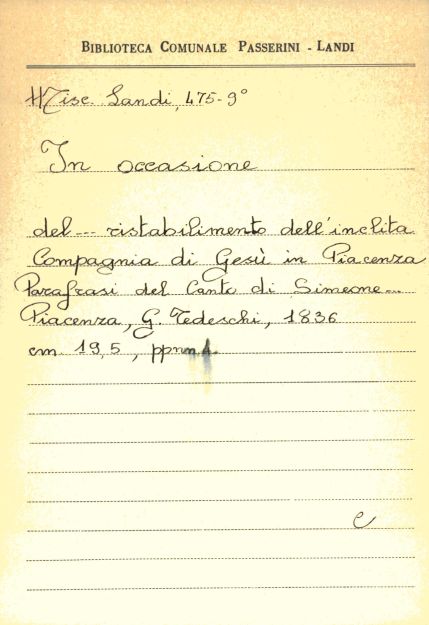 BIBLIOTECA COMUNALE PASSERINI - LANDI
Misc. Landi, 475-9°
In occasione
del --- ristabilimento dell'inclita
Compagnia di Gesù in Piacenza
Parafrasi del Canto di Simeone...
Piacenza, G. Tedeschi, 1836
cm. 19,5, ppnn.
C